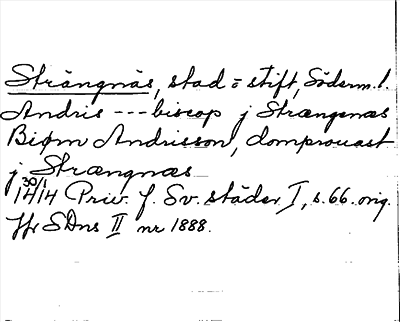 Strängnäs, stad o stift, Söderm. l.
Andris --- biscop j Strængenæs
Biørn Andrisson, domprouast
j Strængnæs
30/1 1414 Priv. f. Sv. städer I, s. 66. orig.
Jfr SDns II nr 1888.